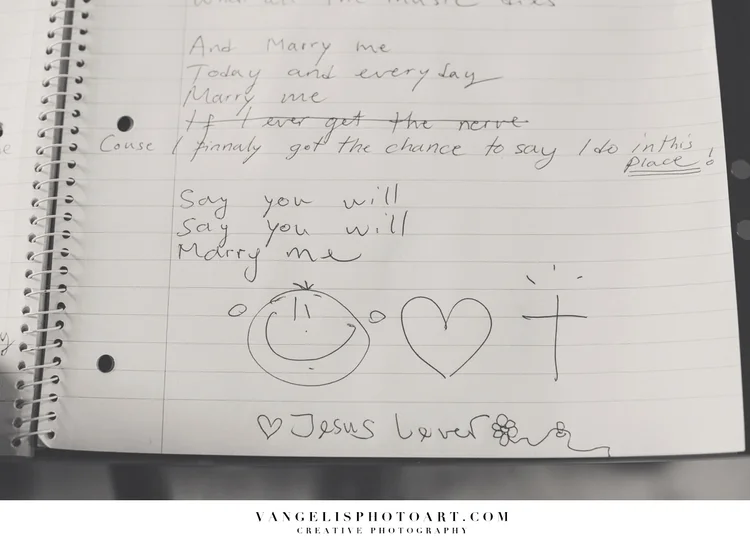 What all the music dies
And Marry me
Today and everyday
Marry me
If I ever get the nerve
Couse I finnaly got the chance to say I do in this place!
Say you will
Say you will
Marry me
Jesus Lever
VANGELISPHOTOART.COM
CREATIVE PHOTOGRAPHY